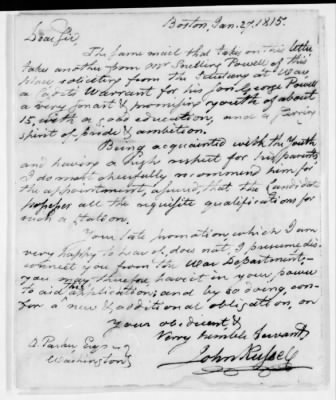 Boston, Jan. 27, 1815.
Dear Sir,
The same mail that take on this letter
take another from Mr Snelling Powell of this
place soliciting from the Secretary at War
a Cadets Warrant for his Son George Powell
a very smart & promising youth of about
15, with a good education, and a
spirit of pride & ambition.
Being acquainted with the Youth
and having a high respect for his parents
I do most cheerfully recommend him for
the appointment, assured, that the Candidate
possesses all the requisite qualifications for
such a station.
Your late promotion which I am
very happy to hear of, does not I presume dis-
connect you from the War Department;
you may therefore have it in your power
to aid his application; and by so doing, con-
fer a new & additional obligation, on
Your obedient &
Very humble Servant
John Russell
D. Parker Esqr
Washington